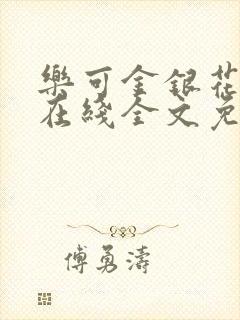 樂可金銀花
在綫全文免
傅勇濤